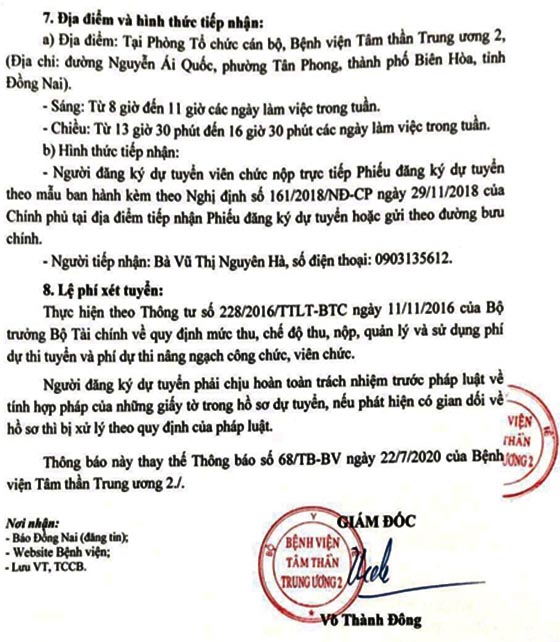 7. Địa điểm và hình thức tiếp nhận:
a) Địa điểm: Tại Phòng Tổ chức cán bộ, Bệnh viện Tâm thần Trung ương 2,
(Địa chỉ: đường Nguyễn Ái Quốc, phường Tân Phong, thành phố Biên Hòa, tỉnh
Đồng Nai).
- Sáng: Từ 8 giờ đến 11 giờ các ngày làm việc trong tuần.
- Chiều: Từ 13 giờ 30 phút đến 16 giờ 30 phút các ngày làm việc trong tuần.
b) Hình thức tiếp nhận:
- Người đăng ký dự tuyển viên chức nộp trực tiếp Phiếu đăng ký dự tuyển
theo mẫu ban hành kèm theo Nghị định số 161/2018/NĐ-CP ngày 29/11/2018 của
Chính phủ tại địa điểm tiếp nhận Phiếu đăng ký dự tuyển hoặc gửi theo đường bưu
chính.
- Người tiếp nhận: Bà Vũ Thị Nguyên Hà, số điện thoại: 0903135612.
8. Lệ phí xét tuyển:
Thực hiện theo Thông tư số 228/2016/TTLT-BTC ngày 11/11/2016 của Bộ
trưởng Bộ Tài chính về quy định mức thu, chế độ thu, nộp, quản lý và sử dụng phí
dự thi tuyển và phí dự thi nâng ngạch công chức, viên chức.
Người đăng ký dự tuyển phải chịu hoàn toàn trách nhiệm trước pháp luật về
tính hợp pháp của những giấy tờ trong hồ sơ dự tuyển, nếu phát hiện có gian dối về
hồ sơ thì bị xử lý theo quy định của pháp luật.
Thông báo này thay thế Thông báo số 68/TB-BV ngày 22/7/2020 của Bệnh
viện Tâm thần Trung ương 2./.
VIỆN
THẦN
ƯƠNG 2
Nơi nhận:
- Báo Đồng Nai (đăng tin);
- Website Bệnh viện;
- Lưu VT, TCCB.
GIÁM ĐỐC
BỘ Y
BỆNH VIỆN
TÂM THẦN
TRUNG ƯƠNG 2
Võ Thành Đông